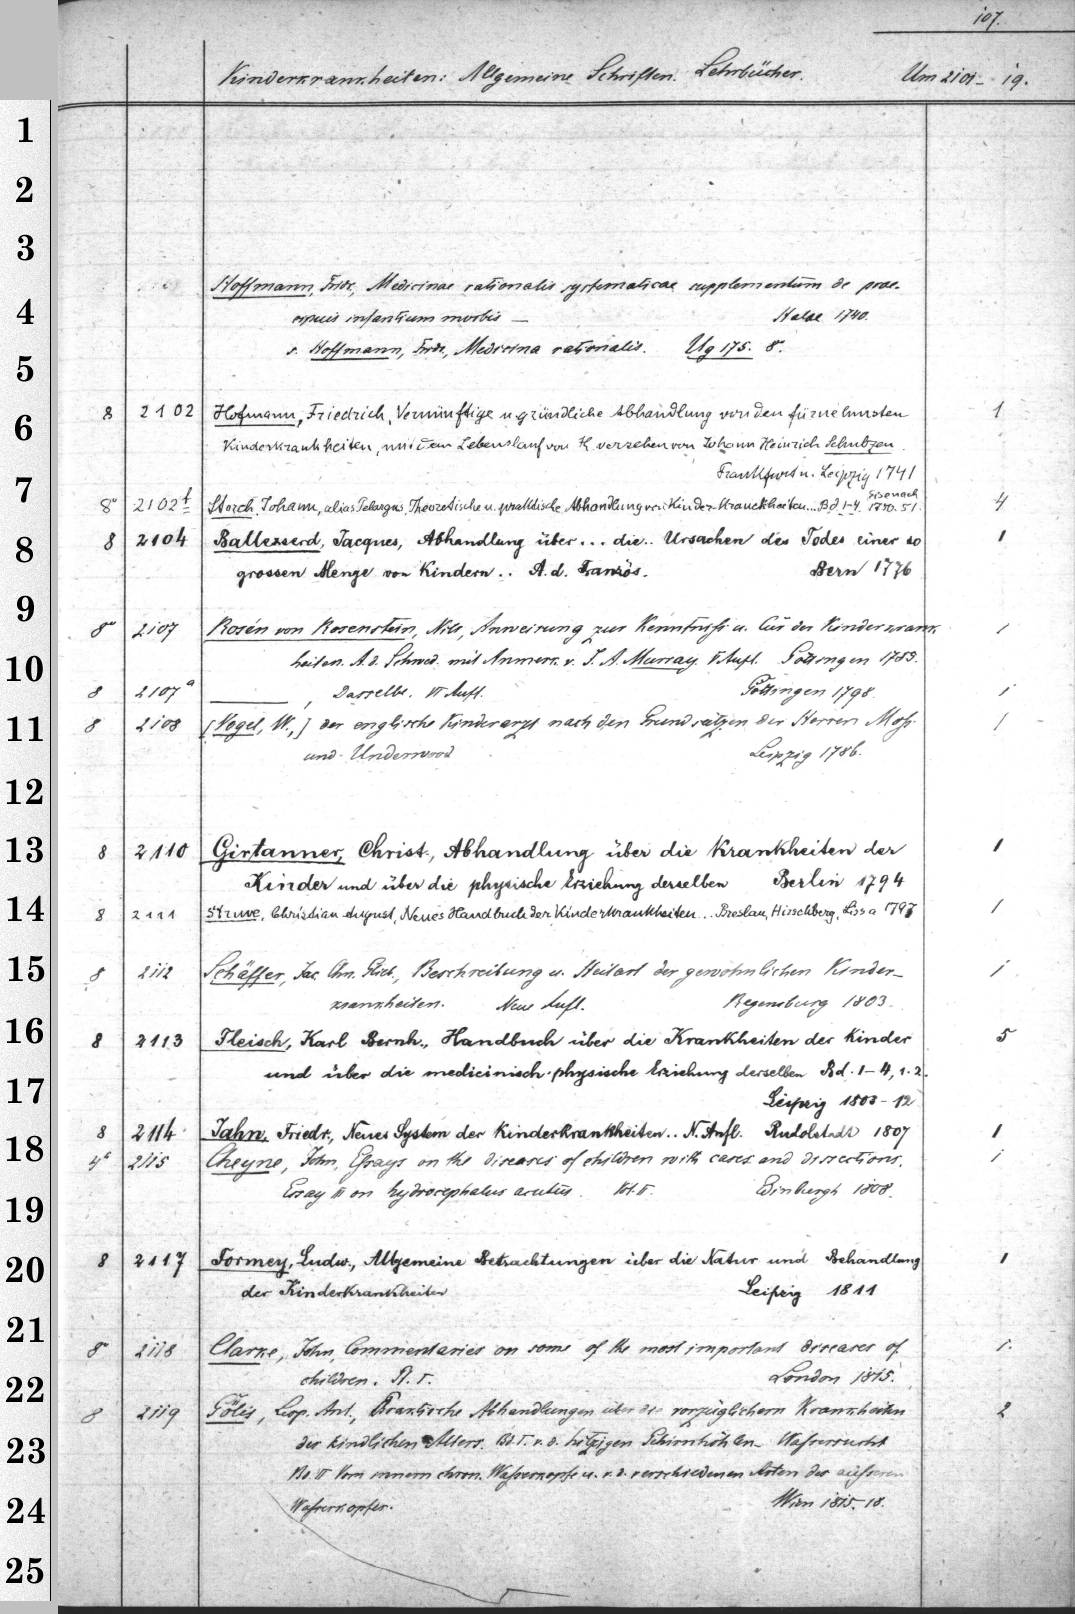 107.
Kinderkrankheiten: Allgemeine Schriften. Lehrbücher. Um 2101-19.
1
2
3
Hoffmann, Fridr., Medicinae rationalis systematicae supplementum de prae-
4
cipuis infantium morbis — Halae 1740.
s. Hoffmann, Fridr., Medicina rationalis. Ug 175. 8°.
5
8 2102 Hofmann, Friedrich, Vernünftige u gründliche Abhandlung von den fürnehmsten 1
6
Kinderkrankheiten, mit dem Lebenslauf von H. versehen von Johann Heinrich Schultzen.
Frankfurt u. Leipzig 1741
7
8° 2102t Storch, Johann, alias Pelargus, Theoretische u. praktische Abhandlung von Kinder-Kranckheiten... Bd 1-4. Eisenach 1750-51. 4
8
8 2104 Ballexserd, Jacques, Abhandlung über... die.. Ursachen des Todes einer so 1
grossen Menge von Kindern.. A. d. Französ. Bern 1776
9
8° 2107 Rosén von Rosenstein, Nils, Anweisung zur Kenntniss u. Cur der Kinderkrank- 1
10
heiten. A. d. Schwed. mit Anmerk. v. J. A. Murray. V Aufl. Göttingen 1783.
8 2107a ———, Dasselbe. VI Aufl. Göttingen 1798. 1
11
8 2108 [Vogel, W.,] der englische Kinderarzt nach den Grundsätzen der Herren Moss 1
und Underwood Leipzig 1786.
12
13
8 2110 Girtanner, Christ., Abhandlung über die Krankheiten der 1
Kinder und über die physische Erziehung derselben Berlin 1794
14
8 2111 Struve, Christian August, Neues Handbuch der Kinderkrankheiten... Breslau, Hirschberg, Lissa 1797 1
15
8 2112 Schäffer, Jac. Chn. Glieb., Beschreibung u. Heilart der gewöhnlichen Kinder- 1
krankheiten. Neue Aufl. Regensburg 1803.
16
8 2113 Fleisch, Karl Bernh., Handbuch über die Krankheiten der Kinder 5
und über die medicinisch-physische Erziehung derselben Bd. 1-4, 1.2.
17
Leipzig 1803-12
8 2114 Jahn, Friedr., Neues System der Kinderkrankheiten.. N. Aufl. Rudolstadt 1807 1
18
4° 2115 Cheyne, John, Essays on the diseases of children with cases and dissections. 1
Essay II on hydrocephalus acutus. Edinburgh 1808.
19
20
8 2117 Formey, Ludw., Allgemeine Betrachtungen über die Natur und Behandlung 1
der Kinderkrankheiten Leipzig 1811
21
8° 2118 Clarke, John, Commentaries on some of the most important diseases of 1.
22
children. Pt. I. London 1815.
8 2119 Gölis, Leop. Ant., Praktische Abhandlungen über die vorzüglichern Krankheiten 2
23
des kindlichen Alters. Bd. I. v. d. hitzigen Gehirnhöhlen- Wassersucht
Bd. II Vom innern chron. Wasserkopfe u. v. d. verschiedenen Arten des äusseren
24
Wasserkopfes. Wien 1815-18.
25